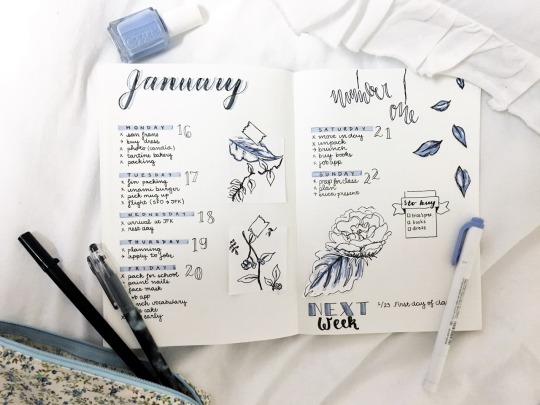 essie
January
MONDAY 16
x san frans
→ buy dress
x photo (candid)
x tartine bakery
x packing
TUESDAY 17
x fin packing
x umami burger
x pick mug up
x flight (SFO → JFK)
WEDNESDAY 18
x arrival at JFK
x rest day
THURSDAY 19
x planning
→ apply to jobs
FRIDAY 20
x pack for school
paint nails
face mask
app
vocabulary
cake
early
number one
SATURDAY 21
x move in day
x unpack
→ brunch
x buy books
x job app
SUNDAY 22
x prep for class
x plan
x
to buy
□
□ books
□ dress
NEXT
Week
1/23 First day of cla